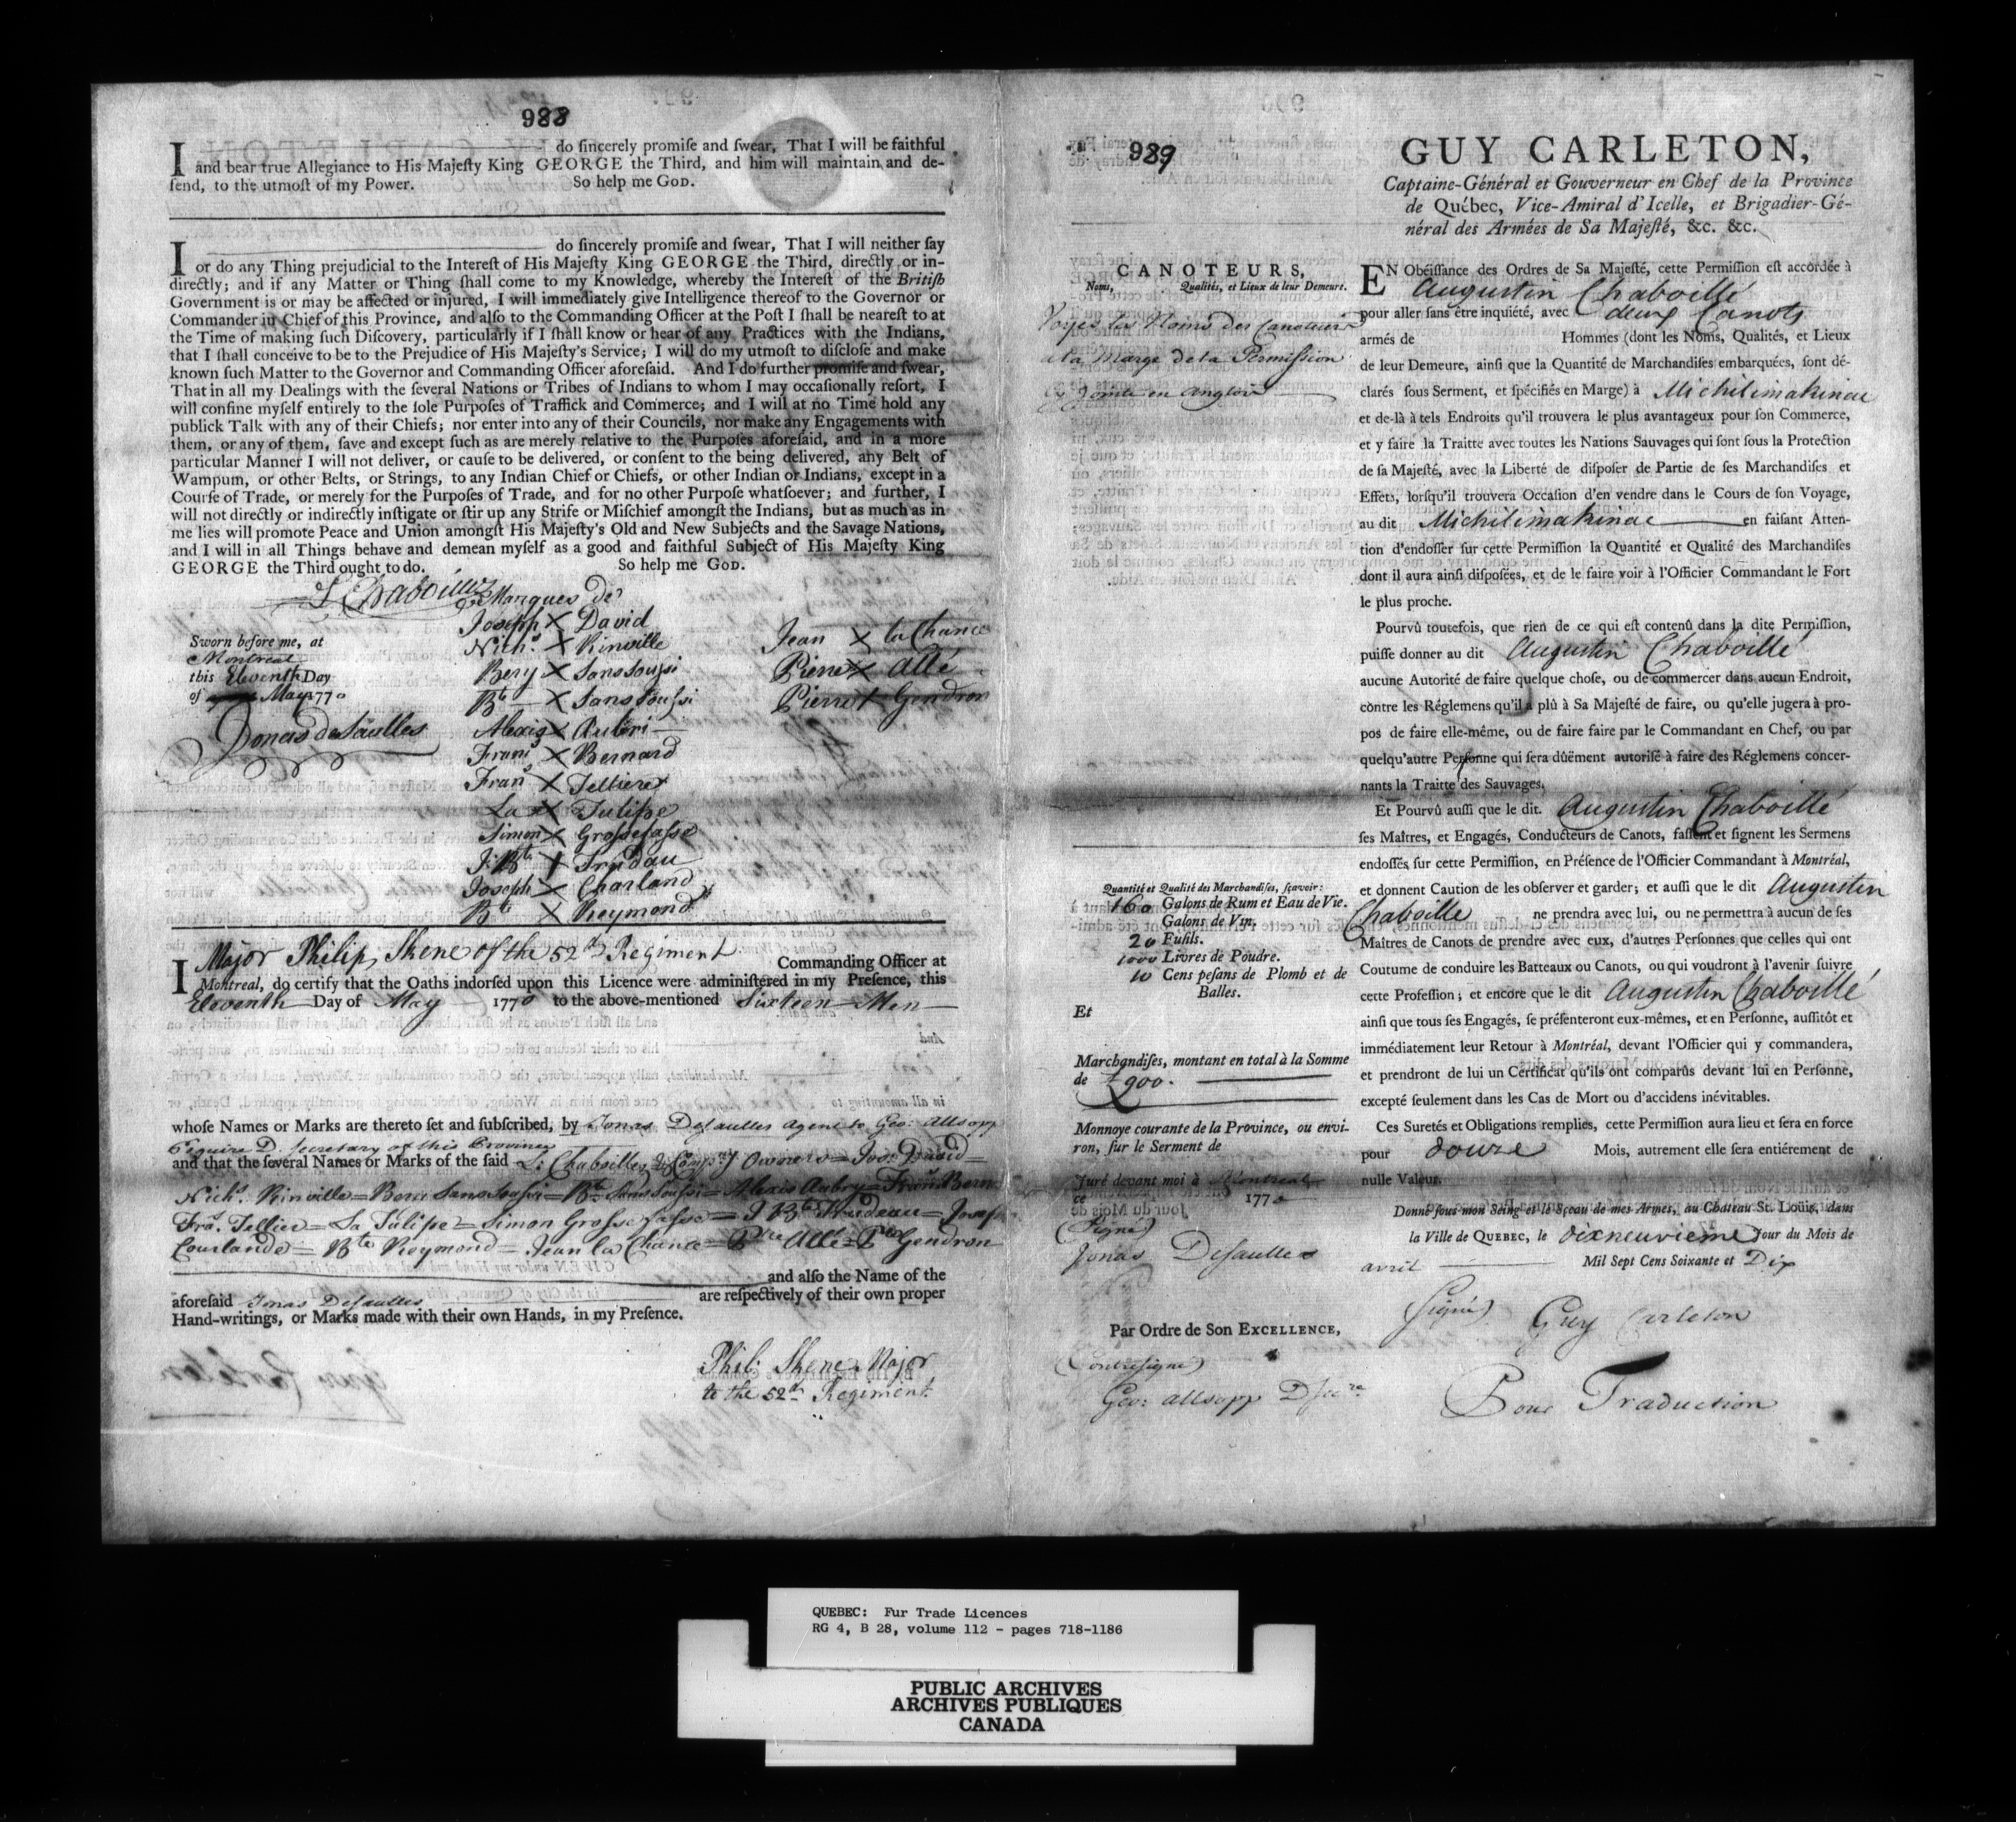 988
I do sincerely promiſe and ſwear, That I will be faithful
and bear true Allegiance to His Majeſty King GEORGE the Third, and him will maintain and de-
fend, to the utmoſt of my Power. So help me GOD.
I do ſincerely promiſe and ſwear, That I will neither ſay
or do any Thing prejudicial to the Intereſt of His Majeſty King GEORGE the Third, directly or in-
directly; and if any Matter or Thing ſhall come to my Knowledge, whereby the Intereſt of the Britiſh
Government is or may be affected or injured, I will immediately give Intelligence thereof to the Governor or
Commander in Chief of this Province, and alſo to the Commanding Officer at the Poſt I ſhall be neareſt to at
the Time of making ſuch Diſcovery, particularly if I ſhall know or hear of any Practices with the Indians,
that I ſhall conceive to be to the Prejudice of His Majeſty's Service; I will do my utmoſt to diſcloſe and make
known ſuch Matter to the Governor and Commanding Officer aforeſaid. And I do further promiſe and ſwear,
That in all my Dealings with the ſeveral Nations or Tribes of Indians to whom I may occaſionally reſort, I
will confine myſelf entirely to the ſole Purpoſes of Traffick and Commerce; and I will at no Time hold any
publick Talk with any of their Chiefs; nor enter into any of their Councils, nor make any Engagements with
them, or any of them, ſave and except ſuch as are merely relative to the Purpoſes aforeſaid, and in a more
particular Manner I will not deliver, or cauſe to be delivered, or conſent to the being delivered, any Belt of
Wampum, or other Belts, or Strings, to any Indian Chief or Chiefs, or other Indian or Indians, except in a
Courſe of Trade, or merely for the Purpoſes of Trade, and for no other Purpoſe whatſoever; and further, I
will not directly or indirectly inſtigate or ſtir up any Strife or Miſchief amongſt the Indians, but as much as in
me lies will promote Peace and Union amongſt His Majeſty's Old and New Subjects and the Savage Nations,
and I will in all Things behave and demean myſelf as a good and faithful Subject of His Majeſty King
GEORGE the Third ought to do. So help me GOD.
L Chaboillez
Marques de
Joseph X David
Nich.s X Rinville
Bery X Sanssoussi
Bte X Sanssoussi
Alexis X Auberi
Frans X Bernard
Frans X Tellier
La X Tulipe
Simon X Grossejasse
J: Bte X Trudau
Joseph X Charland
Bte X Reymond
Jean X la Chance
Pierre X Allé
Pierre X Gendron
Sworn before me, at
Montreal
this Eleventh Day
of May 1770
Jonas deSaulles
I Major Philip Skene of the 52d Regiment Commanding Officer at
Montreal, do certify that the Oaths indorſed upon this Licence were adminiſtered in my Preſence, this
Eleventh Day of May 1770 to the above-mentioned Sixteen Men
whoſe Names or Marks are thereto ſet and ſubſcribed, by Jonas Desaulles Agent to Geo: Allsopp
Esquire D. Secretary of this Province
and that the ſeveral Names or Marks of the ſaid L: Chaboillez & Comp.ny Owners = Jos: David =
Nich.s Rinville = Bery Sanssoussi = Bte Sanssoussi = Alexis Aubry = Frans Bern
Fra.s Tellier = La Tulipe = Simon Grossejasse = J Bte Trudeau = Josep
Courlande = Bte Reymond = Jean la Chance = Pre Allé = Pre Gendron
and alſo the Name of the
aforeſaid Jonas Desaulles are reſpectively of their own proper
Hand-writings, or Marks made with their own Hands, in my Preſence.
Phil: Skene Major
to the 52d Regiment
989
CANOTEURS,
Noms, Qualités, et Lieux de leur Demeure.
Voyes les Noms des Canoteurs
a la Marge de la Permission
cy Jointe en Anglois
Quantité et Qualité des Marchandiſes, ſçavoir:
160 Galons de Rum et Eau de Vie.
Galons de Vin.
20 Fuſils.
1000 Livres de Poudre.
10 Cens peſans de Plomb et de
Balles.
Et
Marchandiſes, montant en total à la Somme
de £900.
Monnoye courante de la Province, ou envi-
ron, ſur le Serment de
Juré devant moi à Montreal
ce Jour du Mois de 1770
(Signé)
Jonas Desaulles
Par Ordre de Son EXCELLENCE,
(Contresigné)
Geo: Allsopp D Secre
GUY CARLETON,
Captaine-Général et Gouverneur en Chef de la Province
de Québec, Vice-Amiral d'Icelle, et Brigadier-Gé-
néral des Armées de Sa Majeſté, &c. &c.
EN Obéiſſance des Ordres de Sa Majeſté, cette Permiſſion eſt accordée à
Augustin Chaboillé
pour aller ſans être inquiété, avec deux Canots
armés de Hommes (dont les Noms, Qualités, et Lieux
de leur Demeure, ainſi que la Quantité de Marchandiſes embarquées, ſont dé-
clarés ſous Serment, et ſpécifiés en Marge) à Michilimakinac
et de-là à tels Endroits qu'il trouvera le plus avantageux pour ſon Commerce,
et y faire la Traitte avec toutes les Nations Sauvages qui ſont ſous la Protection
de ſa Majeſté, avec la Liberté de diſpoſer de Partie de ſes Marchandiſes et
Effets, lorſqu'il trouvera Occaſion d'en vendre dans le Cours de ſon Voyage,
au dit Michilimakinac en faiſant Atten-
tion d'endoſſer ſur cette Permiſſion la Quantité et Qualité des Marchandiſes
dont il aura ainſi diſpoſées, et de le faire voir à l'Officier Commandant le Fort
le plus proche.
Pourvû toutefois, que rien de ce qui eſt contenû dans la dite Permiſſion,
puiſſe donner au dit Augustin Chaboillé
aucune Autorité de faire quelque choſe, ou de commercer dans aucun Endroit,
còntre les Réglemens qu'il a plû à Sa Majeſté de faire, ou qu'elle jugera à pro-
pos de faire elle-même, ou de faire faire par le Commandant en Chef, ou par
quelqu'autre Perſonne qui ſera dûëment autoriſé à faire des Réglemens concer-
nants la Traitte des Sauvages.
Et Pourvû auſſi que le dit. Augustin Chaboillé
ſes Maîtres, et Engagés, Conducteurs de Canots, faſſent et ſignent les Sermens
endoſſés ſur cette Permiſſion, en Préſence de l'Officier Commandant à Montréal,
et donnent Caution de les obſerver et garder; et auſſi que le dit Augustin
Chaboille ne prendra avec lui, ou ne permettra à aucun de ſes
Maîtres de Canots de prendre avec eux, d'autres Perſonnes que celles qui ont
Coutume de conduire les Batteaux ou Canots, ou qui voudront à l'avenir ſuivre
cette Profeſſion; et encore que le dit Augustin Chaboillé
ainſi que tous ſes Engagés, ſe préſenteront eux-mêmes, et en Perſonne, auſſitôt et
immédiatement leur Retour à Montréal, devant l'Officier qui y commandera,
et prendront de lui un Certificat qu'ils ont comparûs devant lui en Perſonne,
excepté ſeulement dans les Cas de Mort ou d'accidens inévitables.
Ces Suretés et Obligations remplies, cette Permiſſion aura lieu et ſera en force
pour douze Mois, autrement elle ſera entiérement de
nulle Valeur.
Donné ſous mon Seing et le Sceau de mes Armes, au Chateau St. Loüis, dans
la Ville de QUEBEC, le dixneuvieme Jour du Mois de
avril Mil Sept Cens Soixante et Dix
(Signé) Guy Carleton
Pour Traduction
QUEBEC: Fur Trade Licences
RG 4, B 28, volume 112 - pages 718-1186
PUBLIC ARCHIVES
ARCHIVES PUBLIQUES
CANADA